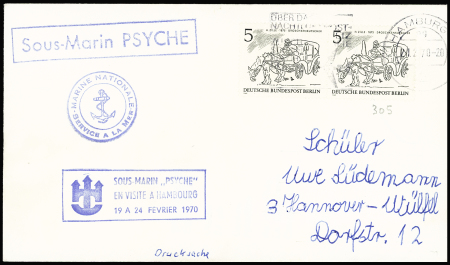 Sous-Marin PSYCHE
ÜBER DA
NACHN
HAMBURG
5
5
DEUTSCHE BUNDESPOST BERLIN
DEUTSCHE BUNDESPOST BERLIN
305
MARINE NATIONALE
SERVICE A LA MER
SOUS-MARIN „PSYCHE"
EN VISITE A HAMBOURG
19 A 24 FEVRIER 1970
Schüler
Uwe Lüdemann
3 Hannover-Wülfel
Dorfstr. 12
Drucksache